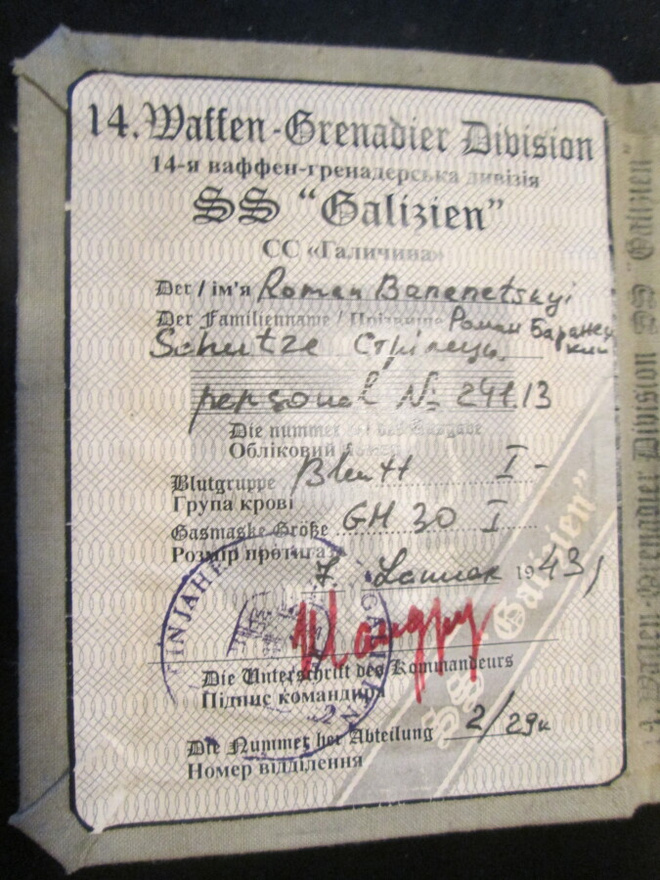 14. Waffen-Grenadier Division
14-я ваффен-гренадерська дивізія
SS "Galizien"
СС «Галичина»
Der / ім'я Roman Banenetskyi
Der Familienname / Прізвище Роман Баранец
кий
Schutze Стрілець
personal № 241.13
Die nummer der Ausgabe
Обліковий
Blutgruppe Blutt I-
Група крові
Gasmaske Größe GM 30 I
Розмір протигаза
1943
Die Unterschrift des Kommandeurs
Підпис командира
Die Nummer her Abteilung 2/29н
Номер відділення
IN JAHE
GALIZIEN
SS Galizien"
14. Waffen-Grenadier Division
SS "Galizien"